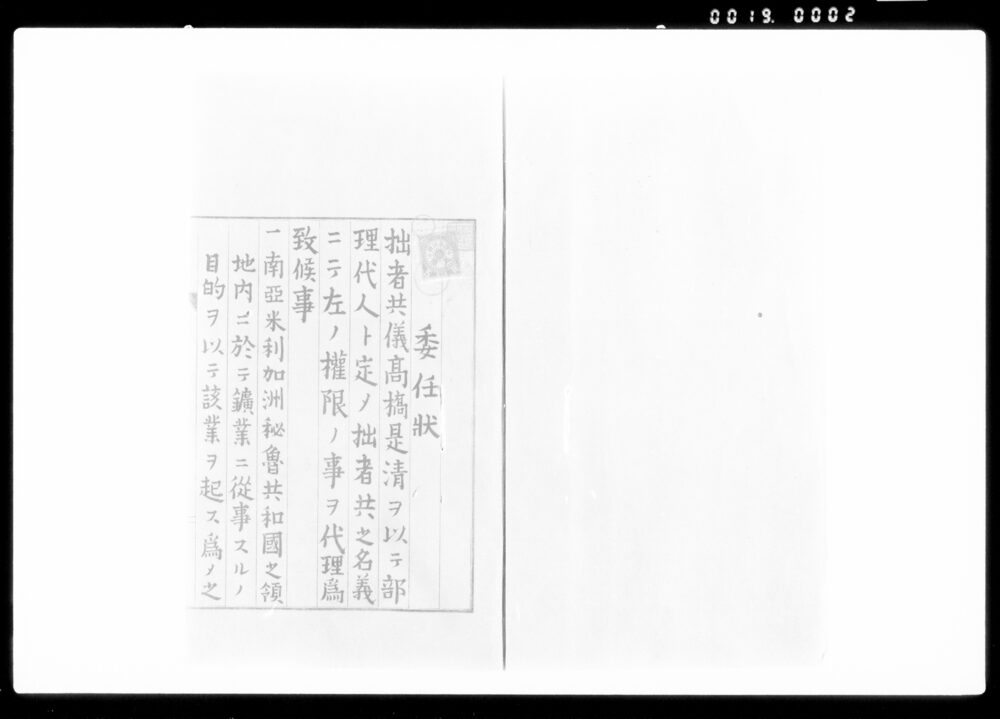 0019.0002
委任状
拙者共儀高橋是清ヲ以テ部
理代人ト定メ拙者共之名義
ニテ左ノ權限ノ事ヲ代理爲
致候事
一南亞米利加洲秘魯共和國之領
地内ニ於テ鑛業ニ從事スルノ
目的ヲ以テ該業ヲ起ス爲メ之